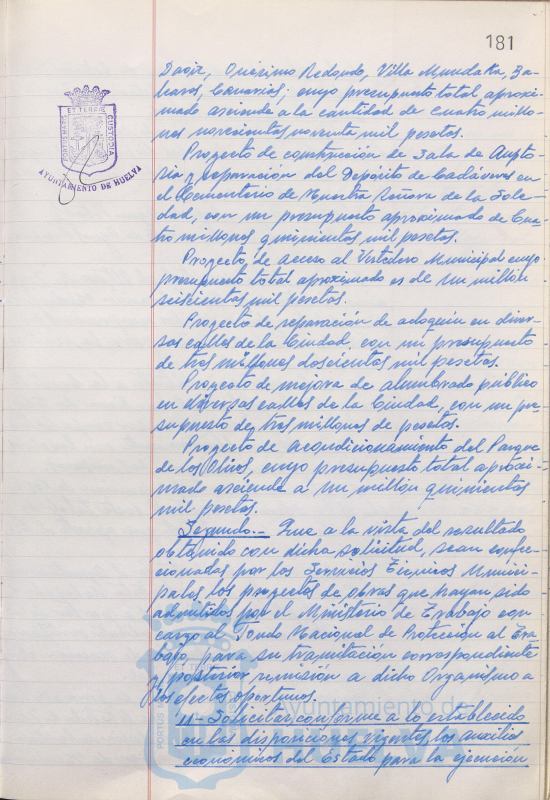 181
Daoiz, Onésimo Redondo, Villa Mundaka, Ba-
leares, Canarias; cuyo presupuesto total aproxi-
mado asciende a la cantidad de cuatro millo-
nes novecientas noventa mil pesetas.
Proyecto de construcción de Sala de Autop-
sia y reparación del Depósito de Cadáveres en
el Cementerio de Nuestra Señora de la Sole-
dad, con un presupuesto aproximado de Cua-
tro millones quinientas mil pesetas.
Proyecto de acceso al Vertedero Municipal cuyo
presupuesto total aproximado es de un millón
seiscientas mil pesetas.
Proyecto de reparación de adoquín en diver-
sas calles de la Ciudad, con un presupuesto
de tres millones doscientas mil pesetas.
Proyecto de mejora de alumbrado público
en diversas calles de la Ciudad, con un pre-
supuesto de tres millones de pesetas.
Proyecto de acondicionamiento del Parque
de los Olivos, cuyo presupuesto total aproxi-
mado asciende a un millón quinientas
mil pesetas.
Segundo.- Que a la vista del resultado
obtenido con dicha solicitud, sean confec-
cionadas por los Servicios Técnicos Munici-
pales los proyectos de obras que hayan sido
admitidos por el Ministerio de Trabajo con
cargo al Fondo Nacional de Protección al Tra-
bajo para su tramitación correspondiente
y posterior remisión a dicho Organismo a
los efectos oportunos.
11- Solicitar, conforme a lo establecido
en las disposiciones vigentes, los auxilios
económicos del Estado para la ejecución
PORTUS MARIS ET TERRAE CUSTODIA
AYUNTAMIENTO DE HUELVA
Ayuntamiento de
HUELVA